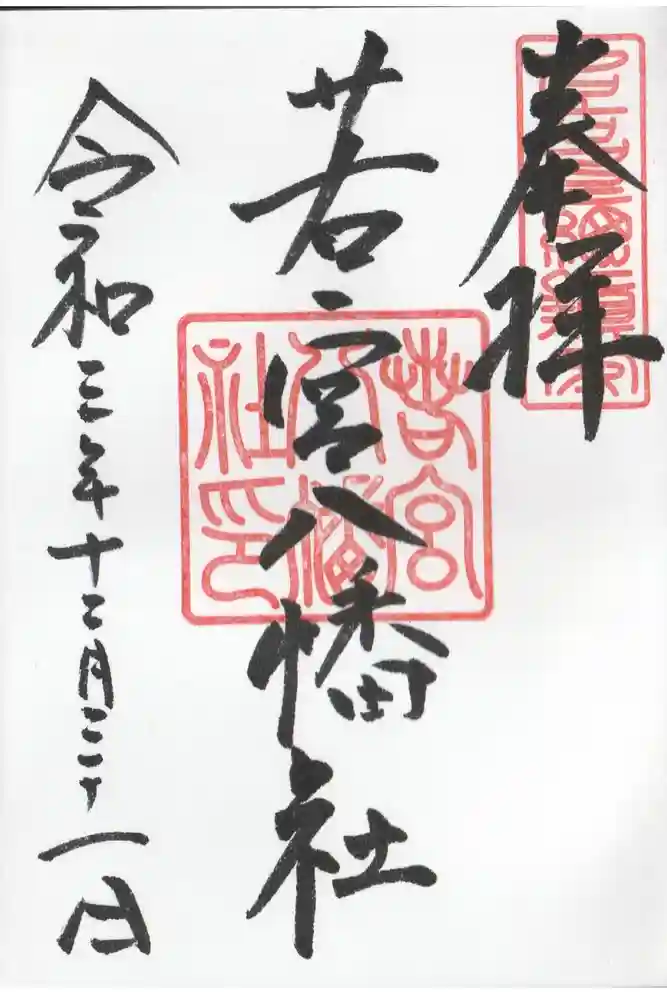 奉拝
若宮八幡社
若宮
八幡
社印
令和三年十二月三十一日